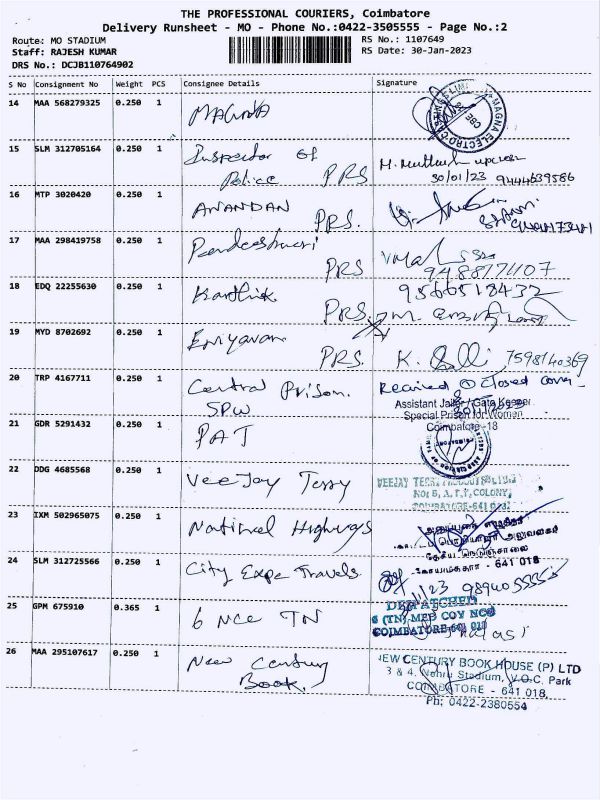 THE PROFESSIONAL COURIERS, Coimbatore
Delivery Runsheet - MO - Phone No.:0422-3505555 - Page No.:2
Route: MO STADIUM
RS No.: 1107649
Staff: RAJESH KUMAR
RS Date: 30-Jan-2023
DRS No.: DCJB110764902
S No Consignment No Weight PCS Consignee Details Signature
14 MAA 568279325 0.250 1 MAGNA
MAGNA ELECTRO
15 SLM 312705164 0.250 1 Inspector Of
Police PRS
30/01/23 9444639586
16 MTP 3020420 0.250 1 ANANDAN PRS.
17 MAA 298419758 0.250 1
PRS 9488174107
18 EDQ 22255630 0.250 1 Karthik 9566518432
PRS
19 MYD 8702692 0.250 1
PRS. 7598140369
20 TRP 4167711 0.250 1 Central Prison. Received @ Closed Cover
SPW
Assistant Jailer / Gate Keeper
Special Prison for Women
Coimbatore -18
21 GDR 5291432 0.250 1 PAT
22 DDG 4685568 0.250 1 VeeJay Terry
VEEJAY
No: 8, A.T.T. COLONY,
COIMBATORE-641 018.
23 IXM 502965075 0.250 1 National Highways
தேசிய நெடுஞ்சாலை
கோயமுத்தூர் - 641 018
24 SLM 312725566 0.250 1 City Expe Travels.
25 GPM 675910 0.365 1 6 NCC TN
DESPATCHED
6 (TN) MED COY NCC
COIMBATORE-641 018
26 MAA 295107617 0.250 1 New Century
Book.
NEW CENTURY BOOK HOUSE (P) LTD
3 & 4, Nehru Stadium, V.O.C. Park
COIMBATORE - 641 018.
Ph: 0422-2380554